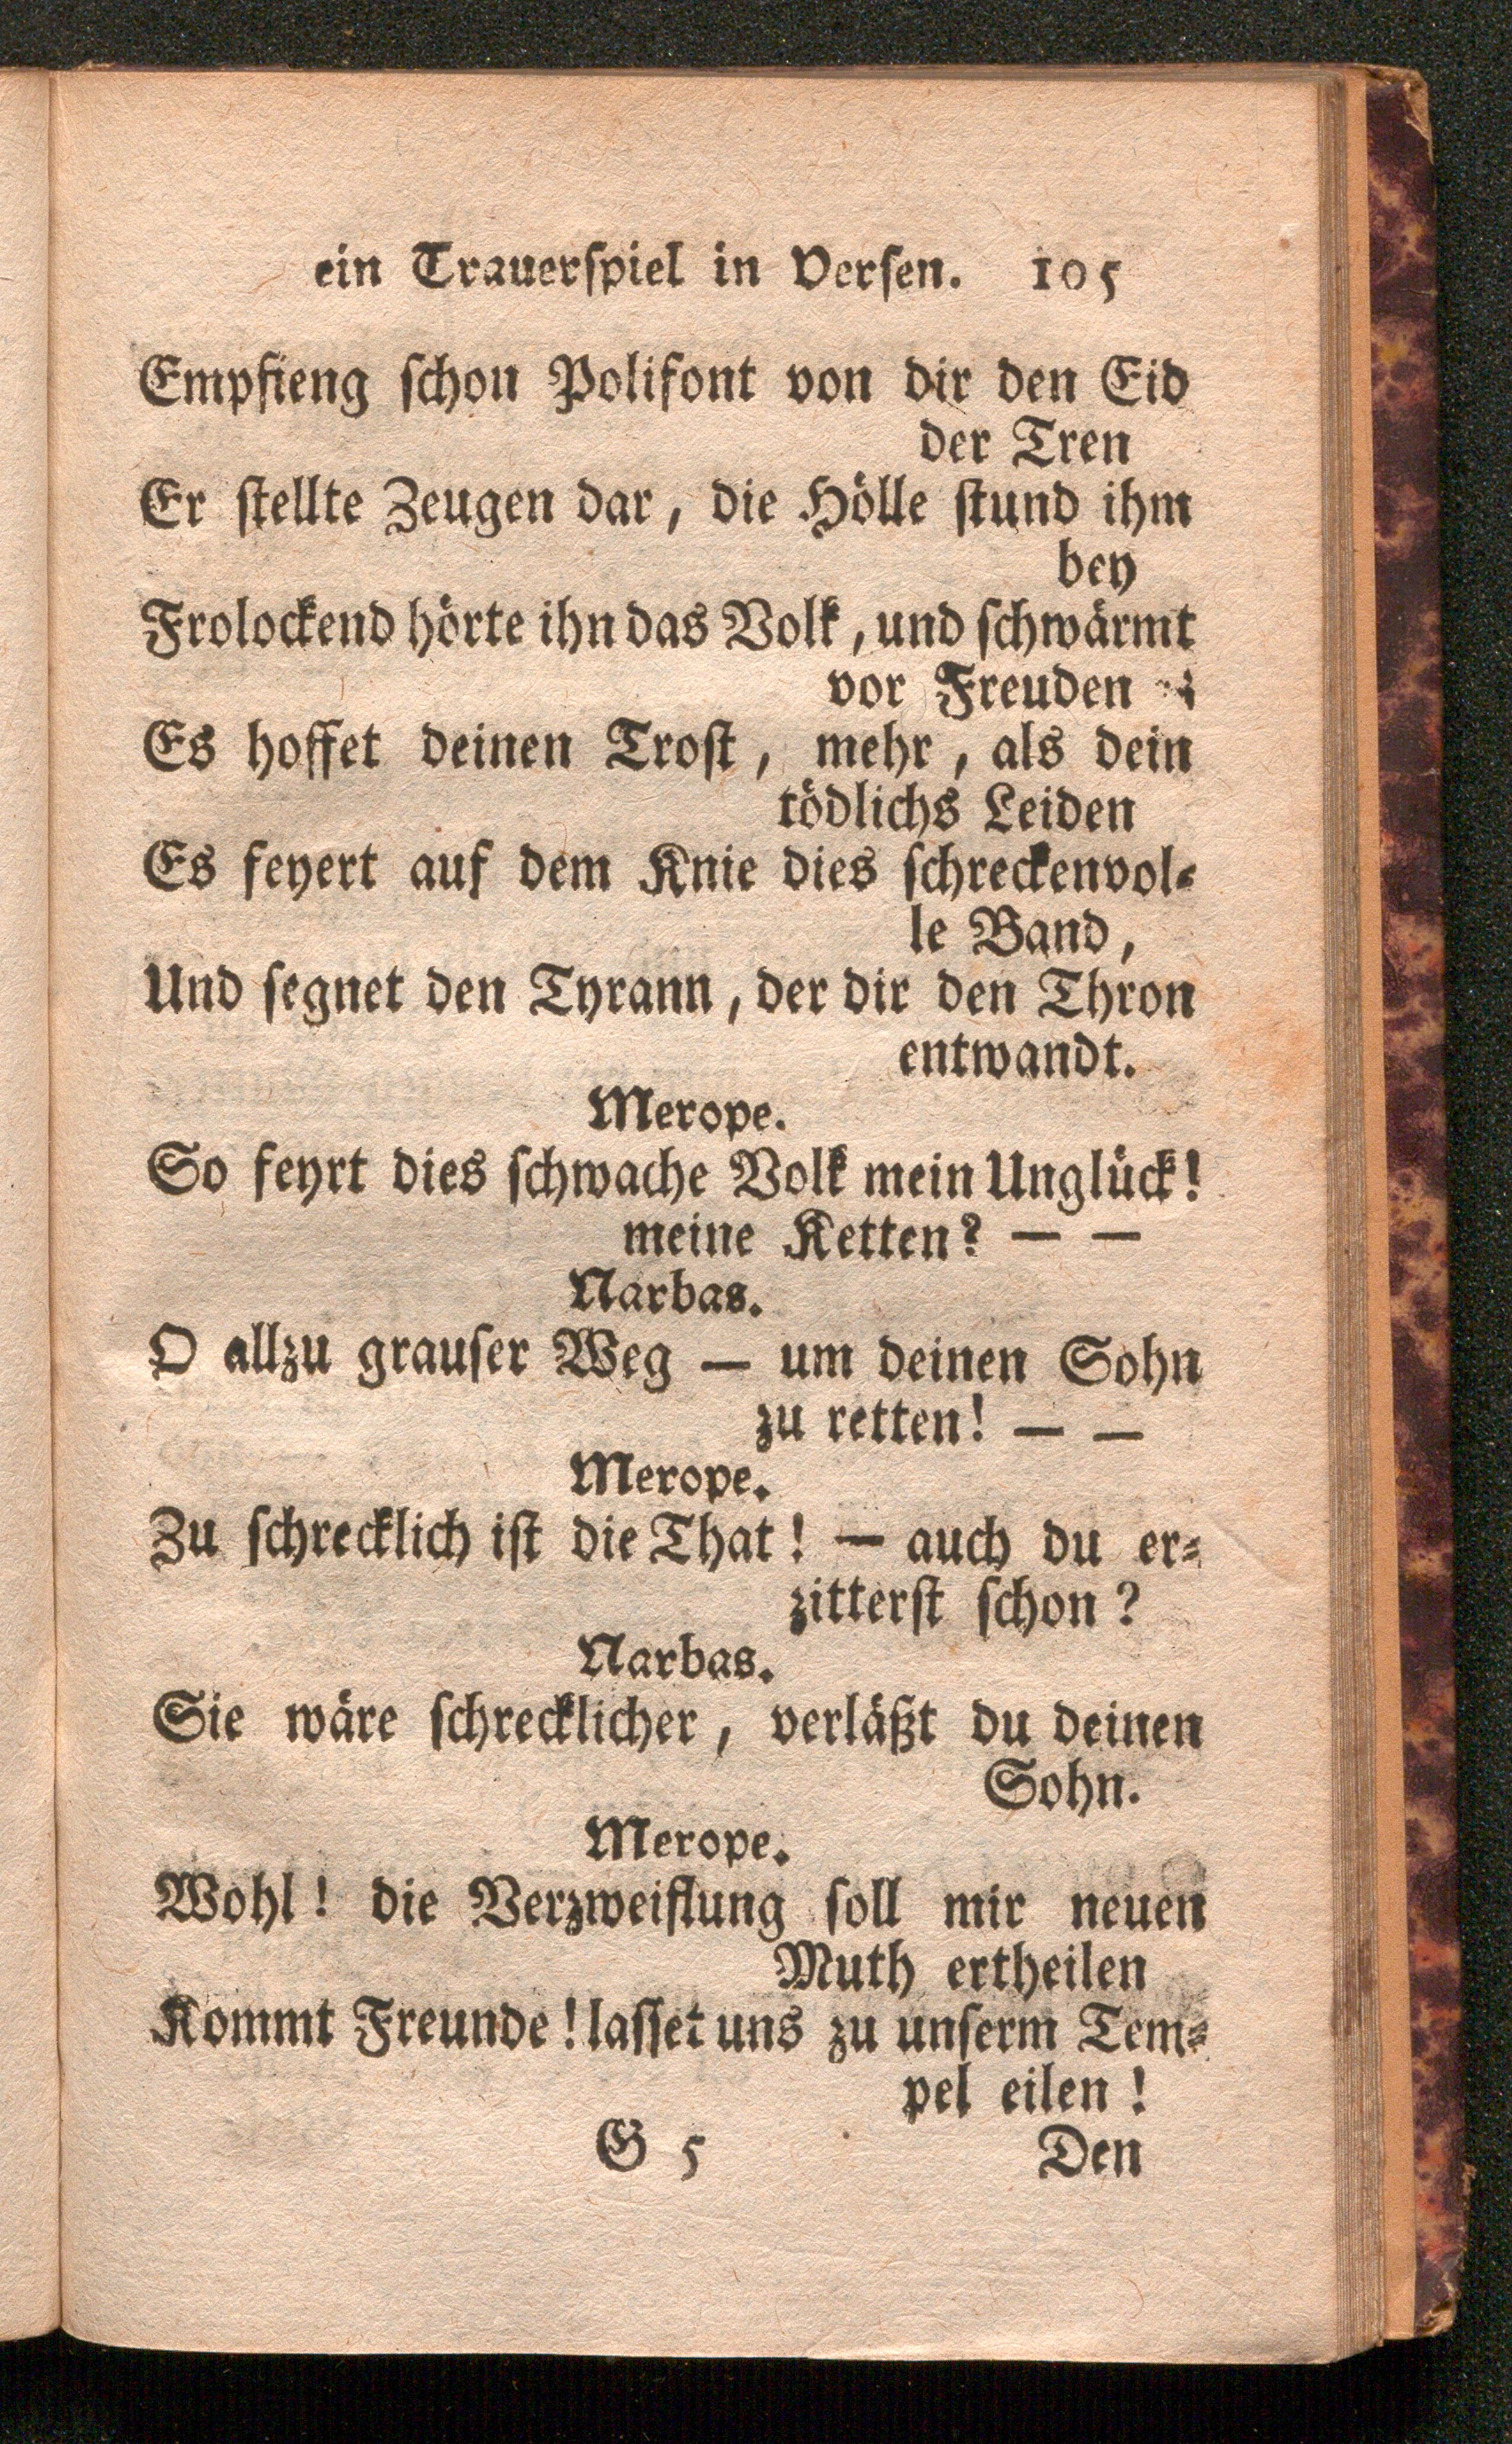 ein Trauerſpiel in Verſen. 105
Empfieng ſchon Polifont von dir den Eid
der Tren
Er ſtellte Zeugen dar, die Hölle ſtund ihm
bey
Frolockend hörte ihn das Volk, und ſchwärmt
vor Freuden
Es hoffet deinen Troſt, mehr, als dein
tödlichs Leiden
Es feyert auf dem Knie dies ſchreckenvol⸗
le Band,
Und ſegnet den Tyrann, der dir den Thron
entwandt.
Merope.
So feyrt dies ſchwache Volk mein Unglück!
meine Ketten? — —
Narbas.
O allzu grauſer Weg — um deinen Sohn
zu retten! — —
Merope.
Zu ſchrecklich iſt die That! — auch du er⸗
zitterſt ſchon?
Narbas.
Sie wäre ſchrecklicher, verläßt du deinen
Sohn.
Merope.
Wohl! die Verzweiflung ſoll mir neuen
Muth ertheilen
Kommt Freunde! laſſet uns zu unſerm Tem⸗
pel eilen!
G 5 Den